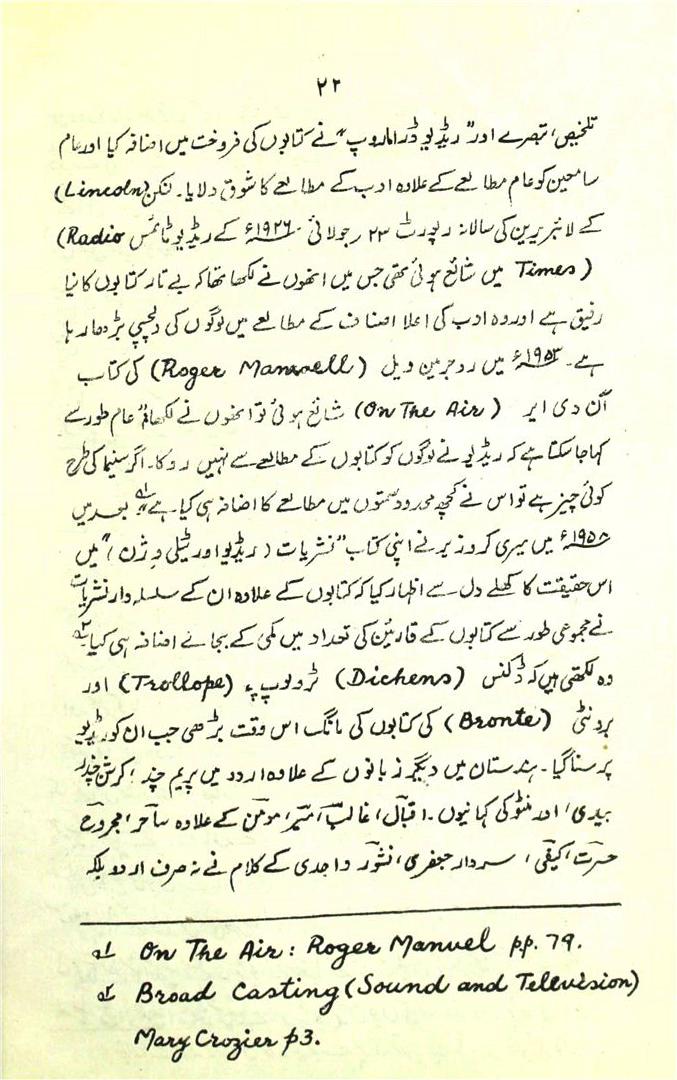 ۲۲
تلخیص، تبصرے اور "ریڈیو ڈراما روپ" نے کتابوں کی فروخت میں اضافہ کیا اور عام
سامعین کو عام مطالعے کے علاوہ ادب کے مطالعے کا شوق دلایا۔ لنکن (Lincoln)
کے لائبریرین کی سالانہ رپورٹ ۲۳ جولائی ۱۹۲۶ء کے ریڈیو ٹائمس (Radio
Times) میں شائع ہوئی تھی جس میں انھوں نے لکھا تھا کہ بے تار کتابوں کا نیا
رفیق ہے اور وہ ادب کی اعلا اصناف کے مطالعے میں لوگوں کی دلچسپی بڑھا رہا
ہے۔ ۱۹۵۳ء میں روجر مین ویل (Roger Manvell) کی کتاب
آن دی ایر (On The Air) شائع ہوئی تو انھوں نے لکھا "عام طور سے
کہا جا سکتا ہے کہ ریڈیو نے لوگوں کو کتابوں کے مطالعے سے نہیں روکا۔ اگر سنیما کی طرح
کوئی چیز ہے تو اس نے کچھ محدود سمتوں میں مطالعے کا اضافہ ہی کیا ہے"۱؎ بعد میں
۱۹۵۸ء میں میری کروزیر نے اپنی کتاب "نشریات (ریڈیو اور ٹیلی وژن)" میں
اس حقیقت کا کھلے دل سے اظہار کیا کہ کتابوں کے علاوہ ان کے سلسلہ وار نشریات
نے مجموعی طور سے کتابوں کے قارئین کی تعداد میں کمی کے بجائے اضافہ ہی کیا۔۲؎
وہ لکھتی ہیں کہ ڈکنس (Dickens) ٹرولوپ (Trollope) اور
برونٹی (Bronte) کی کتابوں کی مانگ اس وقت بڑھی جب ان کو ریڈیو
پر سنا گیا۔ ہندستان میں دیگر زبانوں کے علاوہ اردو میں پریم چند، کرشن چندر
بیدی، اور منٹو کی کہانیوں۔ اقبال، غالب، میر، مومن کے علاوہ ساحر، مجروح
حسرت، کیفی، سردار جعفری، نشور واحدی کے کلام نے نہ صرف اردو بلکہ
۱؎ On The Air: Roger Manuel pp. 79.
۲؎ Broad Casting (Sound and Television)
Mary Crozier p3.